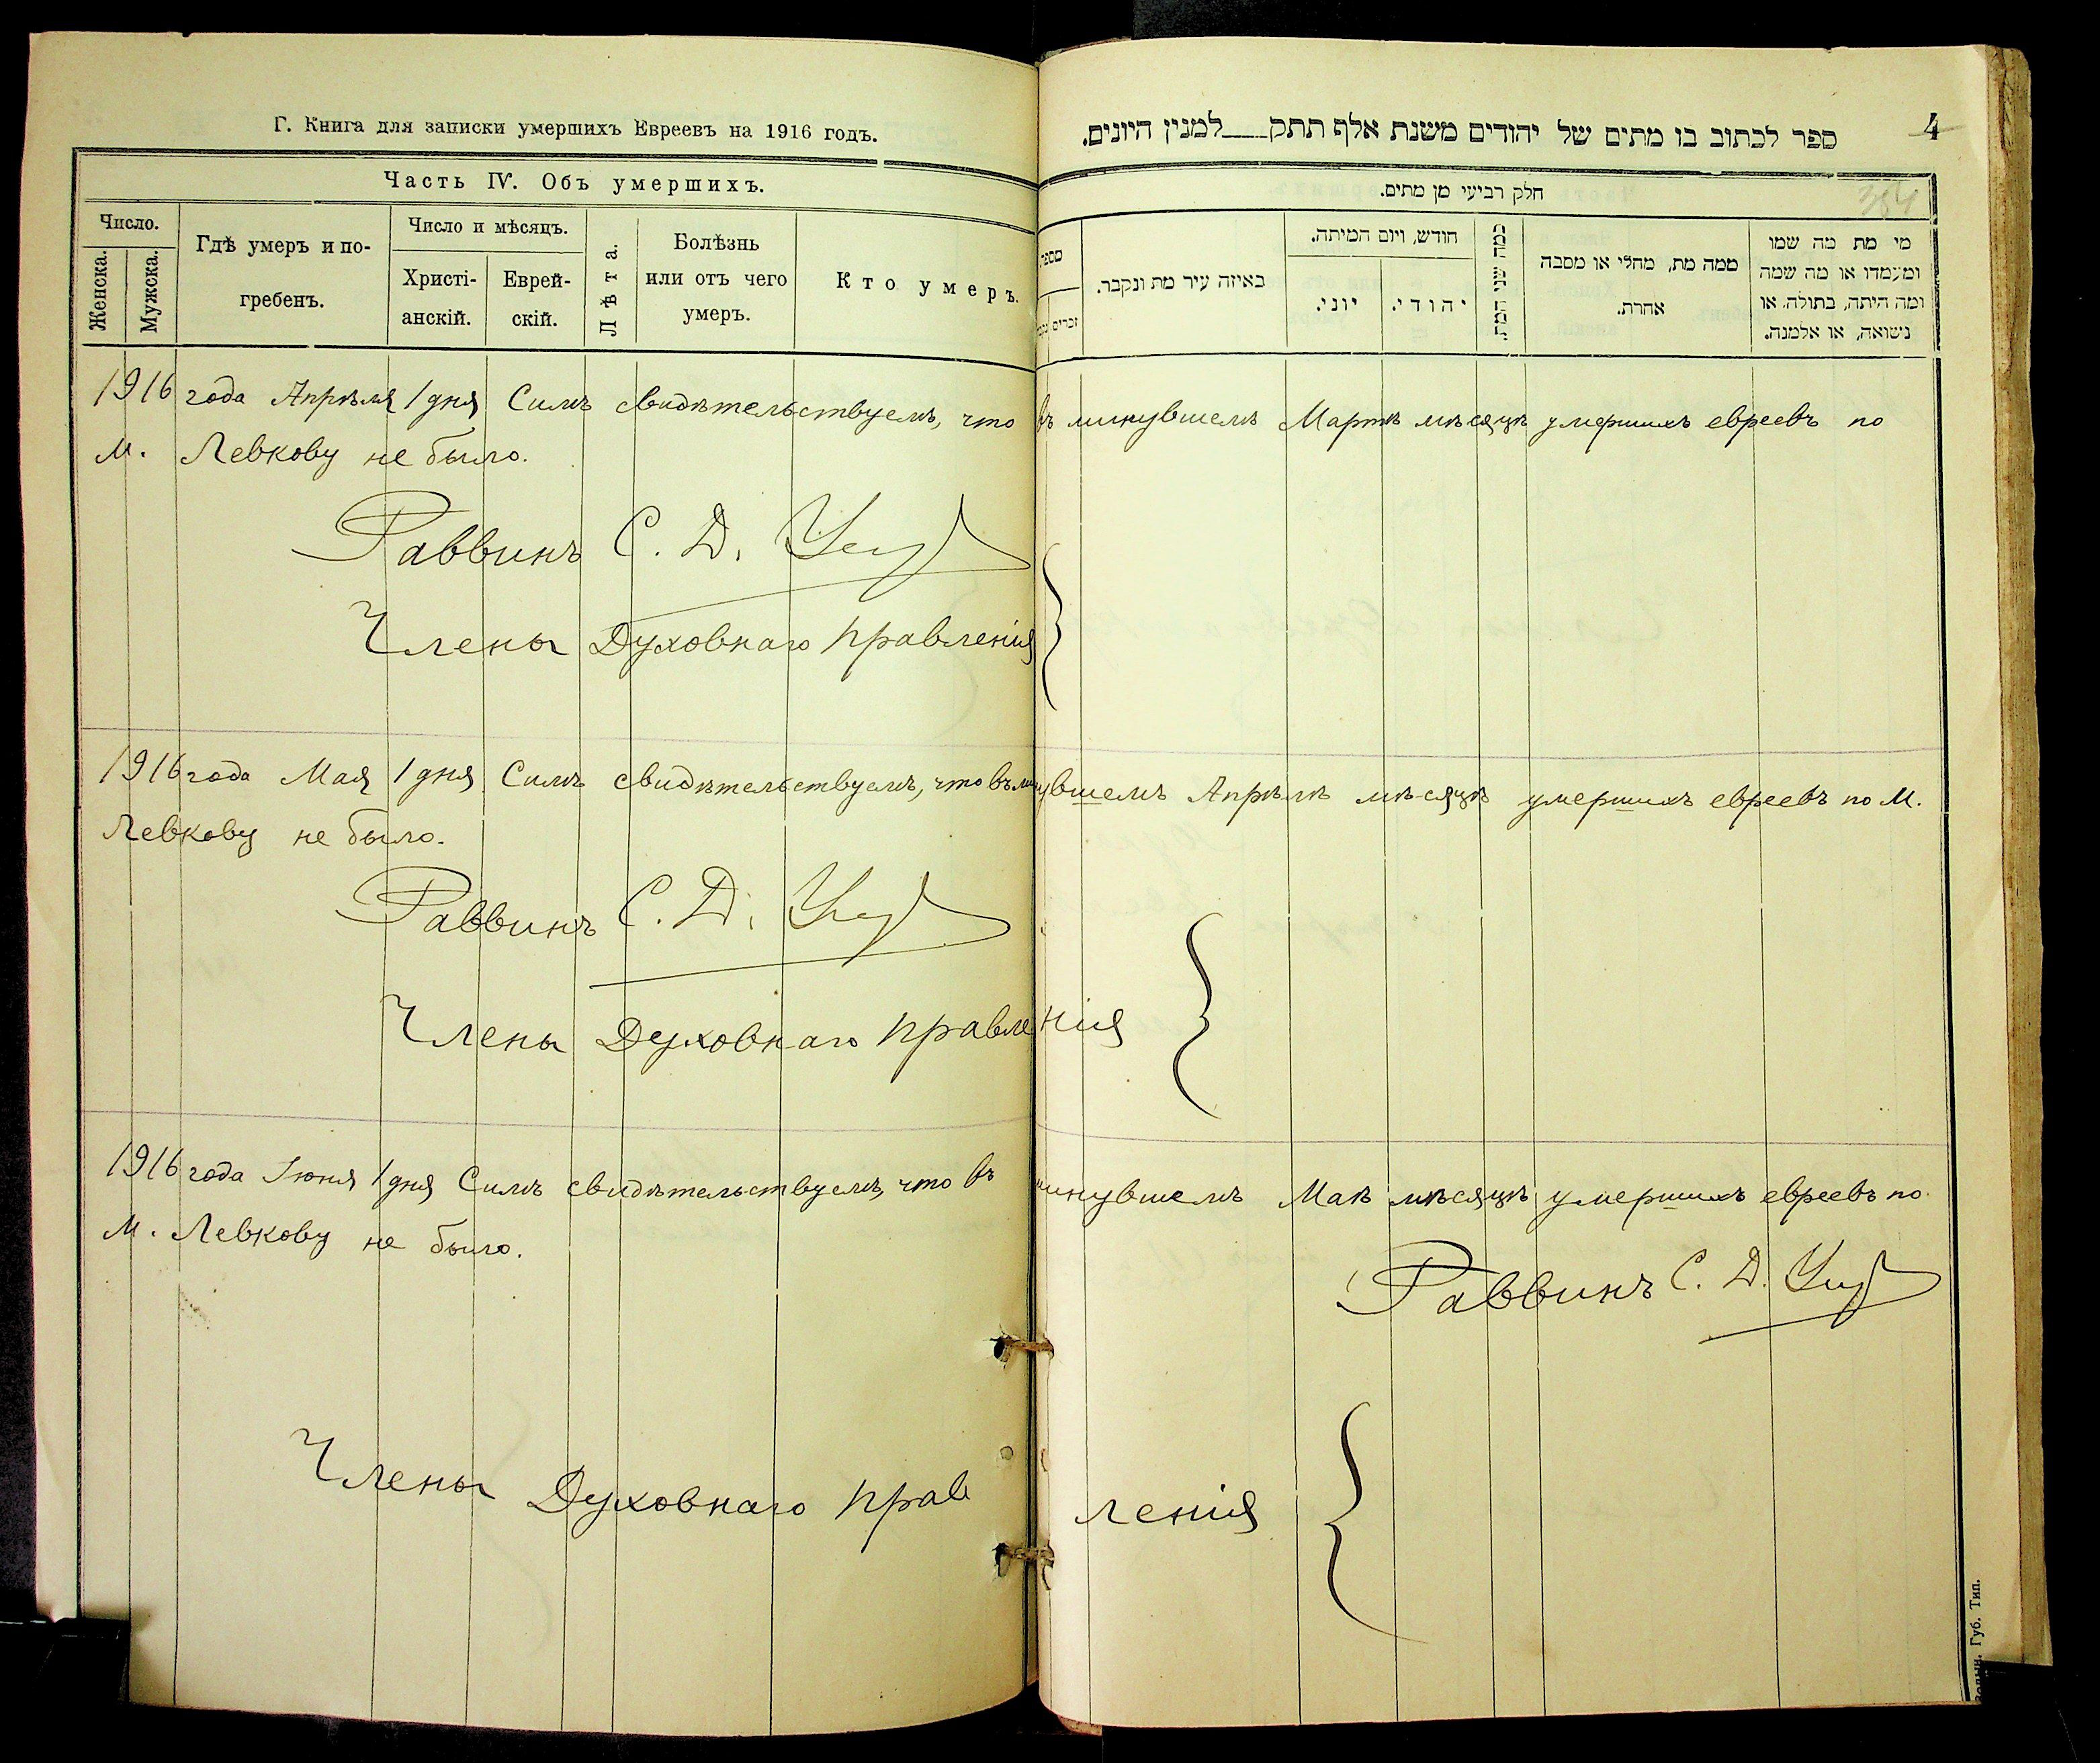 Г. Книга для записки умершихъ Евреевъ на 1916 годъ.
Часть IV. Объ умершихъ.
Число.
Женска.
Мужска.
Гдѣ умеръ и по-
гребенъ.
Число и мѣсяцъ.
Христі-
анскій.
Еврей-
скій.
Лѣта.
Болѣзнь
или отъ чего
умеръ.
Кто умеръ.
ספר לכתוב בו מתים של יהודים משנת אלף תתק למנין היונים.
4
חלק רביעי מן מתים.
384
מספר
זכרים
באיזה עיר מת ונקבר.
חודש, ויום המיתה.
יוני.
יהודי.
כמה שני המת.
ממה מת, מחלי או מסבה
אחרת.
מי מת מה שמו
ומעמדו או מה שמה
ומה היתה, בתולה, או
נשואה, או אלמנה.
1916 года Апрѣля 1 дня Симъ свидѣтельствуемъ, что въ минувшемъ Мартѣ мѣсяцѣ умершихъ евреевъ по
м. Левкову не было.
Раввинъ С. Д.
Члены Духовнаго правленія
1916 года Мая 1 дня Симъ свидѣтельствуемъ, что въ минувшемъ Апрѣлѣ мѣсяцѣ умершихъ евреевъ по м.
Левкову не было.
Раввинъ С. Д.
Члены Духовнаго правленія
1916 года Іюня 1 дня Симъ свидѣтельствуемъ, что въ минувшемъ Маѣ мѣсяцѣ умершихъ евреевъ по
м. Левкову не было.
Раввинъ С. Д.
Члены Духовнаго правленія
Волын. Губ. Тип.